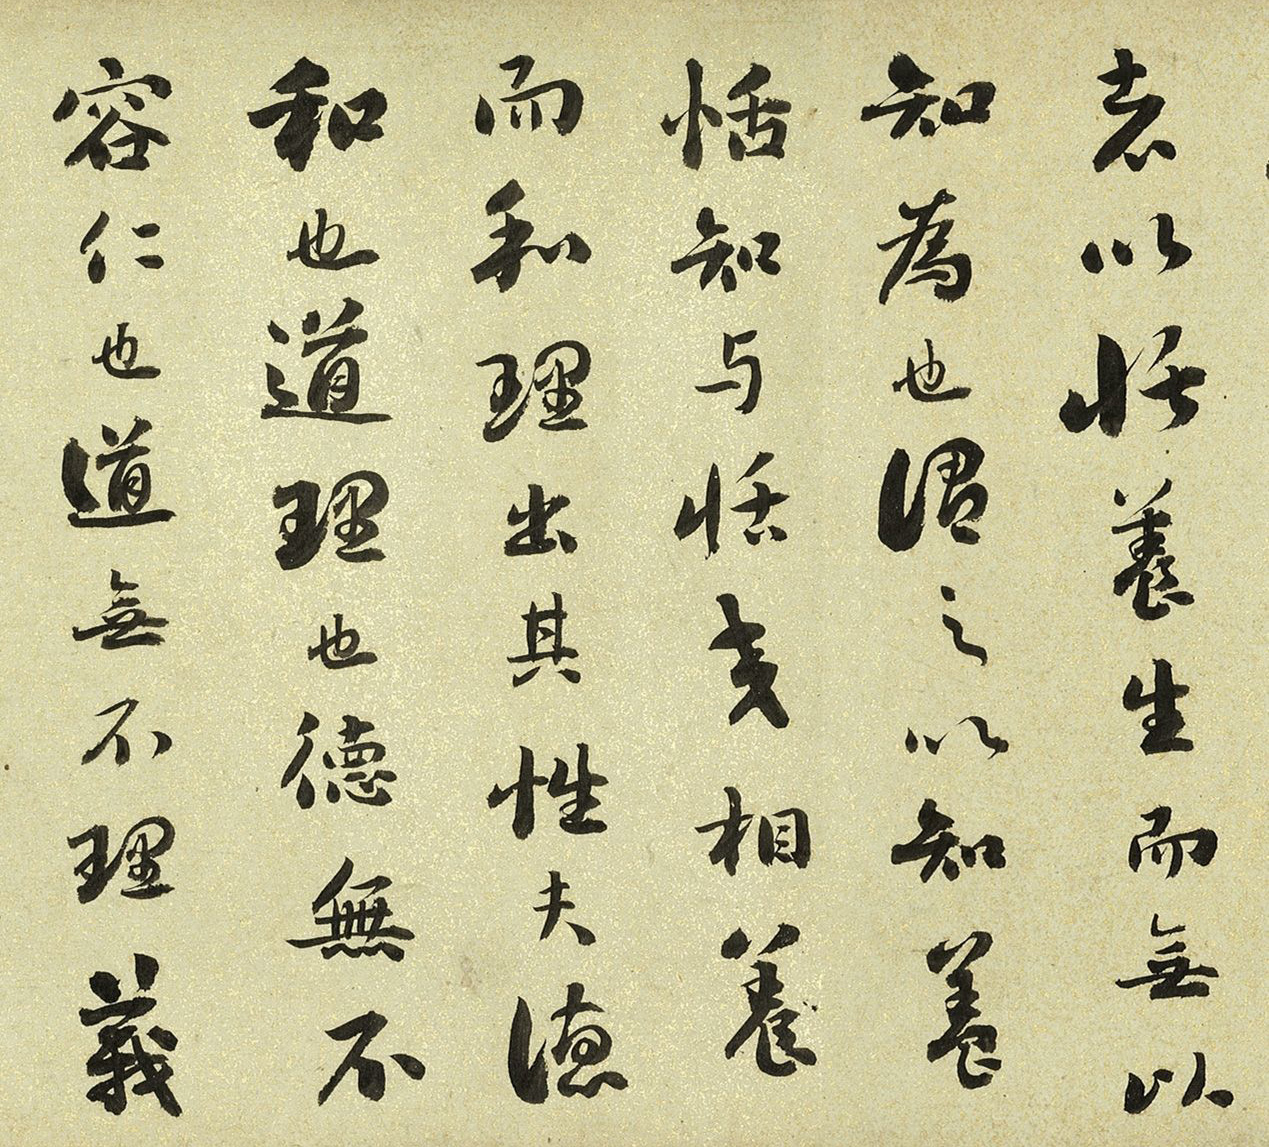 者以恬養生而無以
知為也謂之以知養
恬知与恬交相養
而和理出其性夫德
和也道理也德無不
容仁也道無不理義